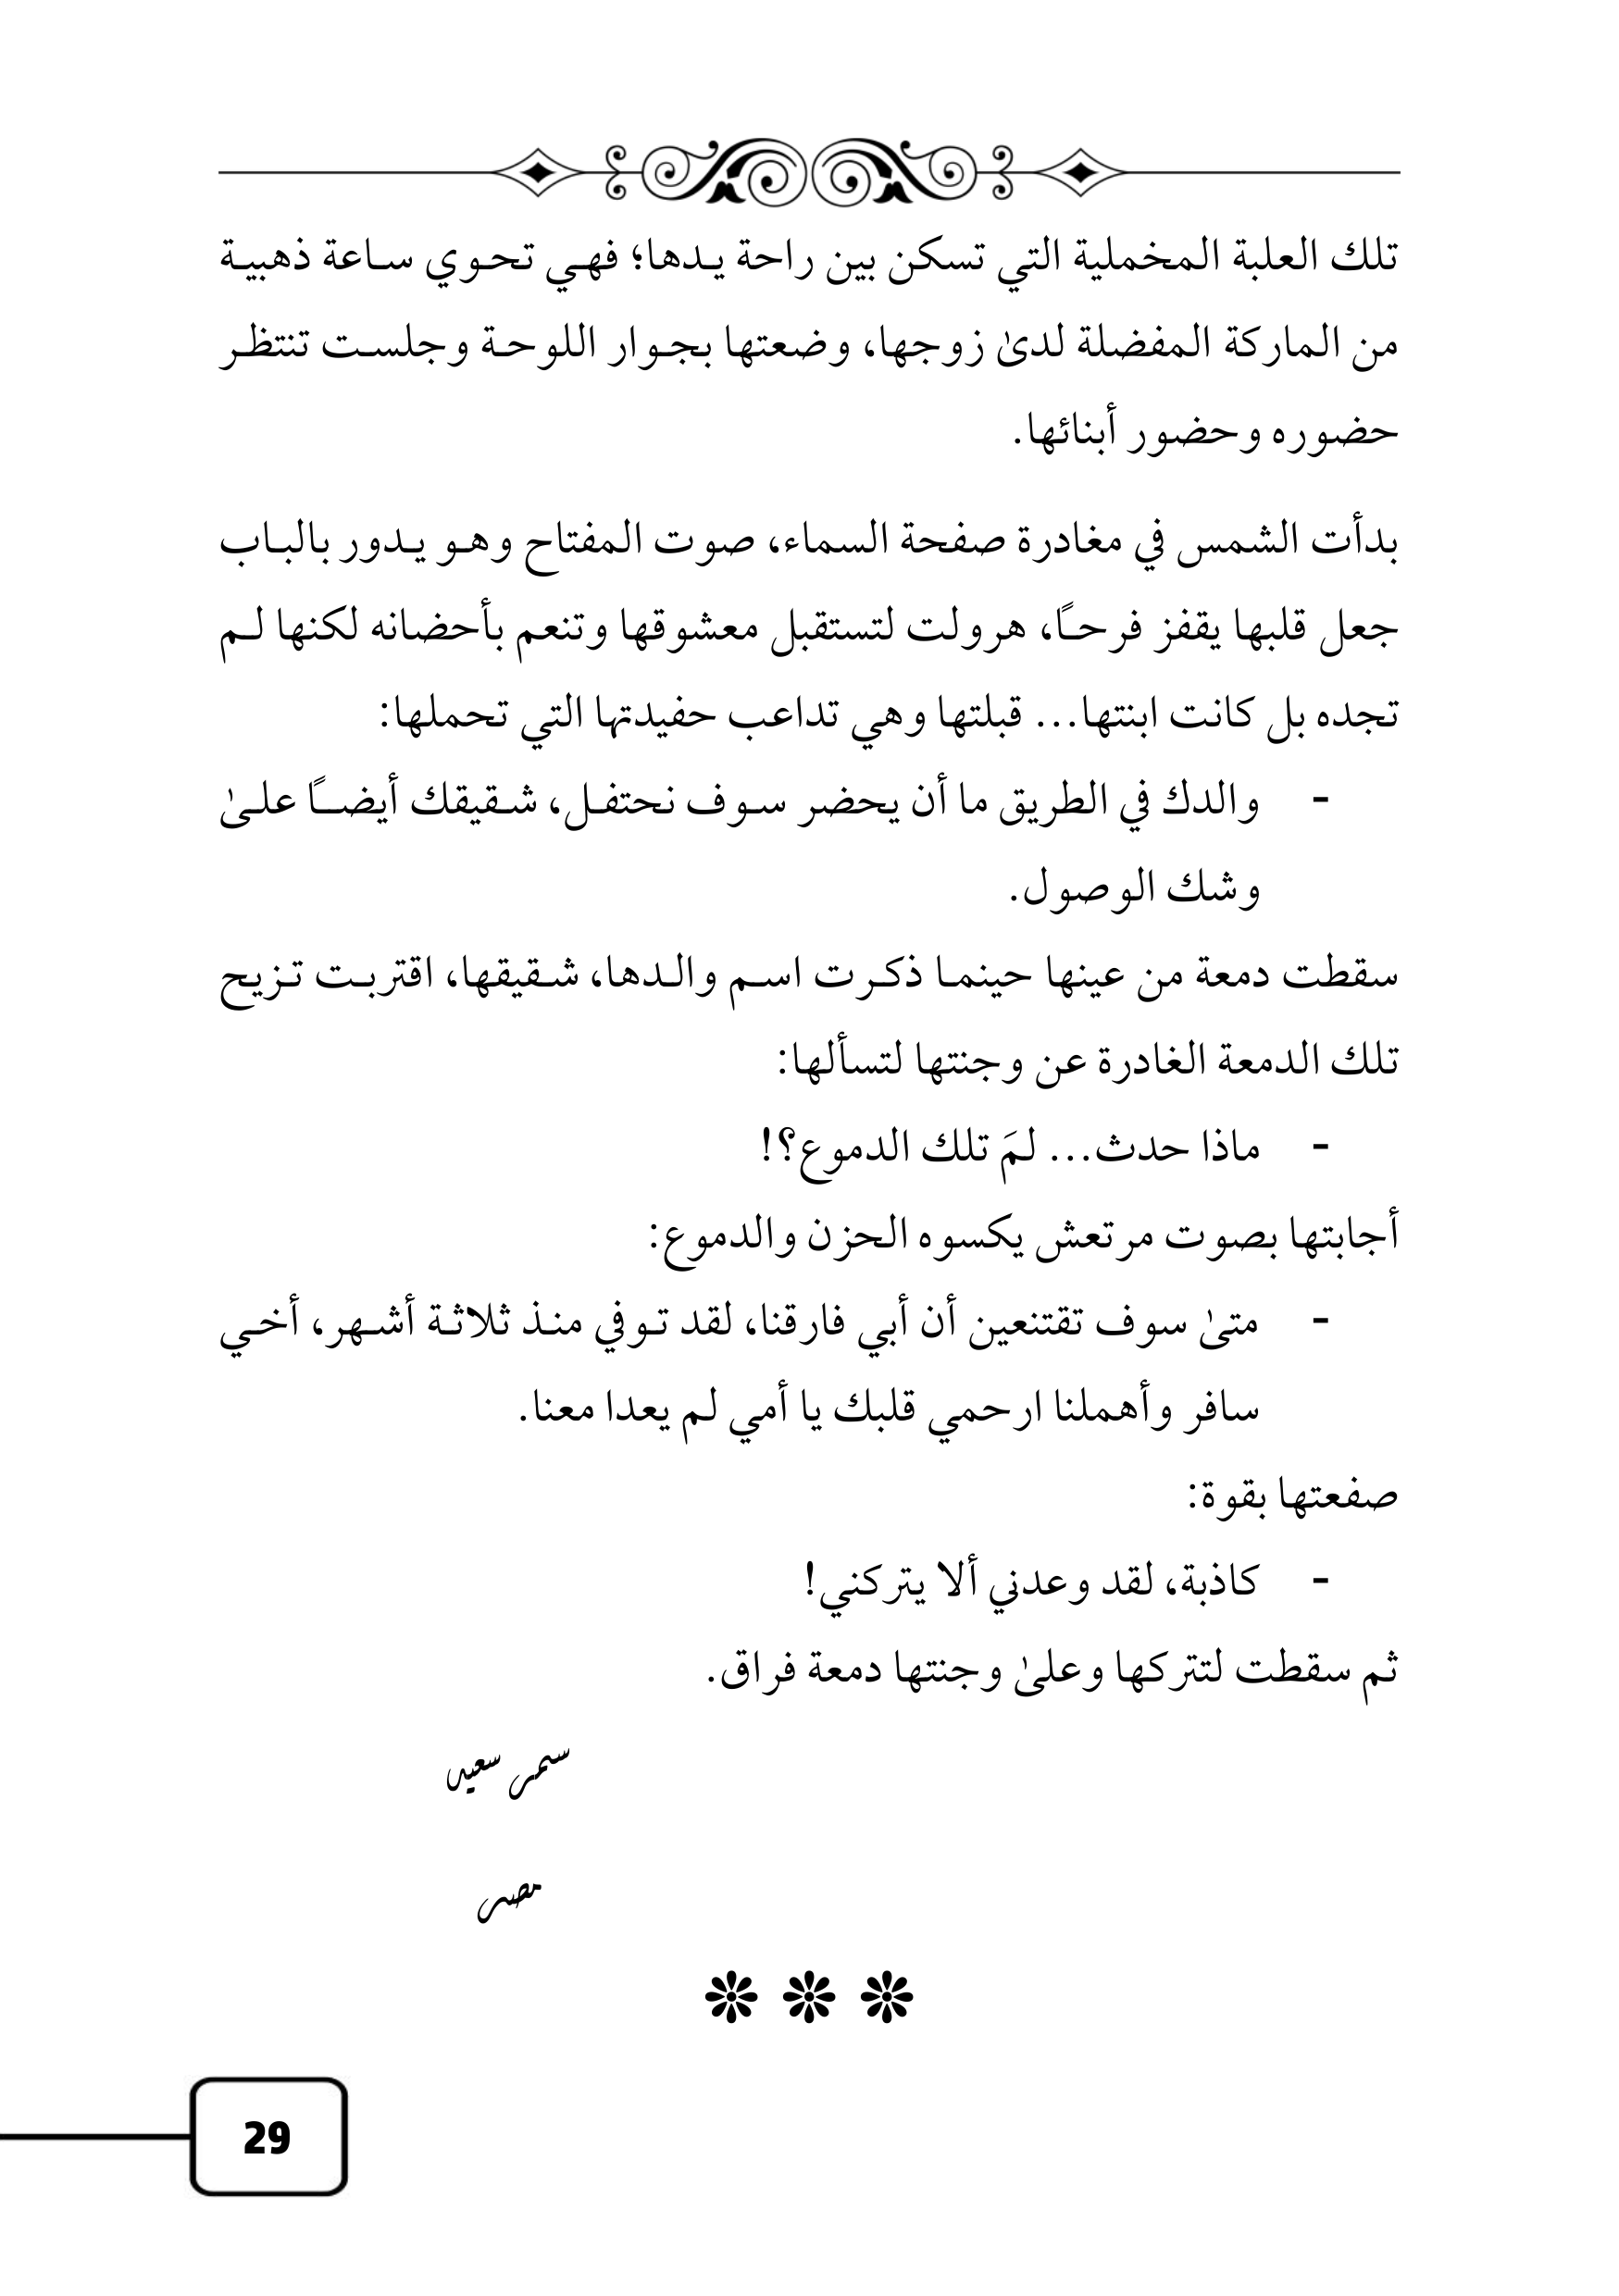 تلك العلبة المخملية التي تسكن بين راحة يدها؛ فهي تحوي ساعة ذهبية
من الماركة المفضلة لدىٰ زوجها، وضعتها بجوار اللوحة وجلست تنتظر
حضوره وحضور أبنائها.
بدأت الشمس في مغادرة صفحة السماء، صوت المفتاح وهو يدور بالباب
جعل قلبها يقفز فرحًا، هرولت لتستقبل معشوقها وتنعم بأحضانه لكنها لم
تجده بل كانت ابنتها... قبلتها وهي تداعب حفيدتها التي تحملها:
- والدك في الطريق ما أن يحضر سوف نحتفل، شقيقك أيضًا علىٰ
وشك الوصول.
سقطت دمعة من عينها حينما ذكرت اسم والدها، شقيقها، اقتربت تزيح
تلك الدمعة الغادرة عن وجنتها لتسألها:
- ماذا حدث... لمَ تلك الدموع؟!
أجابتها بصوت مرتعش يكسوه الحزن والدموع:
- متىٰ سوف تقتنعين أن أبي فارقنا، لقد توفي منذ ثلاثة أشهر، أخي
سافر وأهملنا ارحمي قلبك يا أمي لم يعدا معنا.
صفعتها بقوة:
- كاذبة، لقد وعدني ألا يتركني!
ثم سقطت لتتركها وعلىٰ وجنتها دمعة فراق.
سمر سعيد
مصر
29